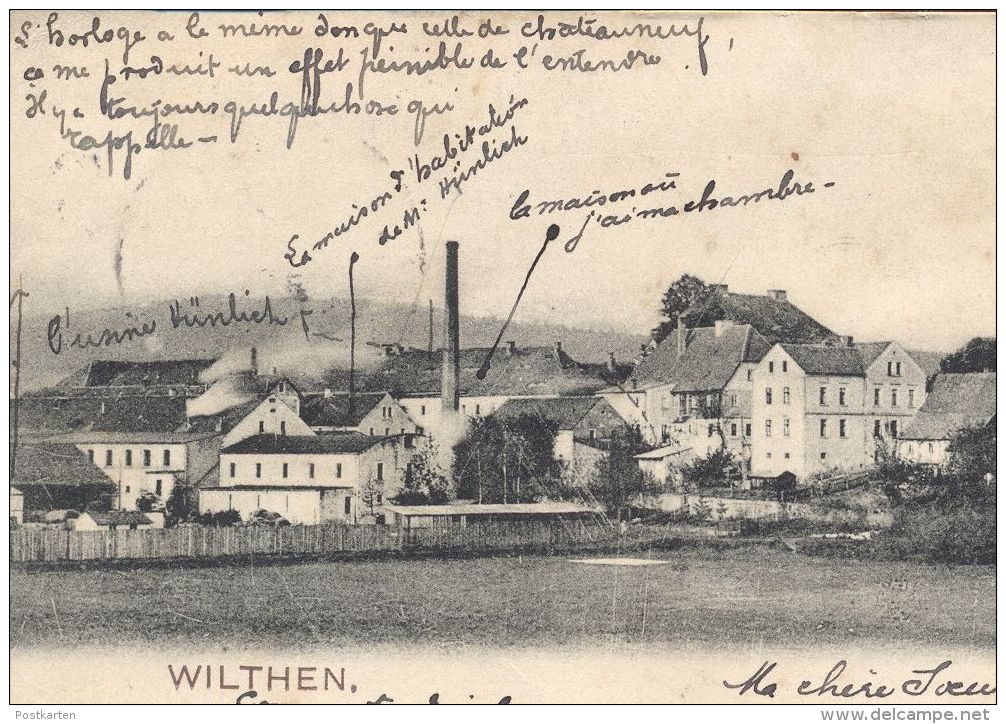 L'horloge a le même son que celle de châteauneuf,
ça me produit un effet peinible de l'entendre.
Il y a toujours quelque chose qui
rappelle –
La maison d'habitation
de Mr Hünlich
la maison où
j'ai ma chambre –
l'usine Hünlich
WILTHEN.
Ma chère Sœur
Postkarten
http://www.delcampe.net